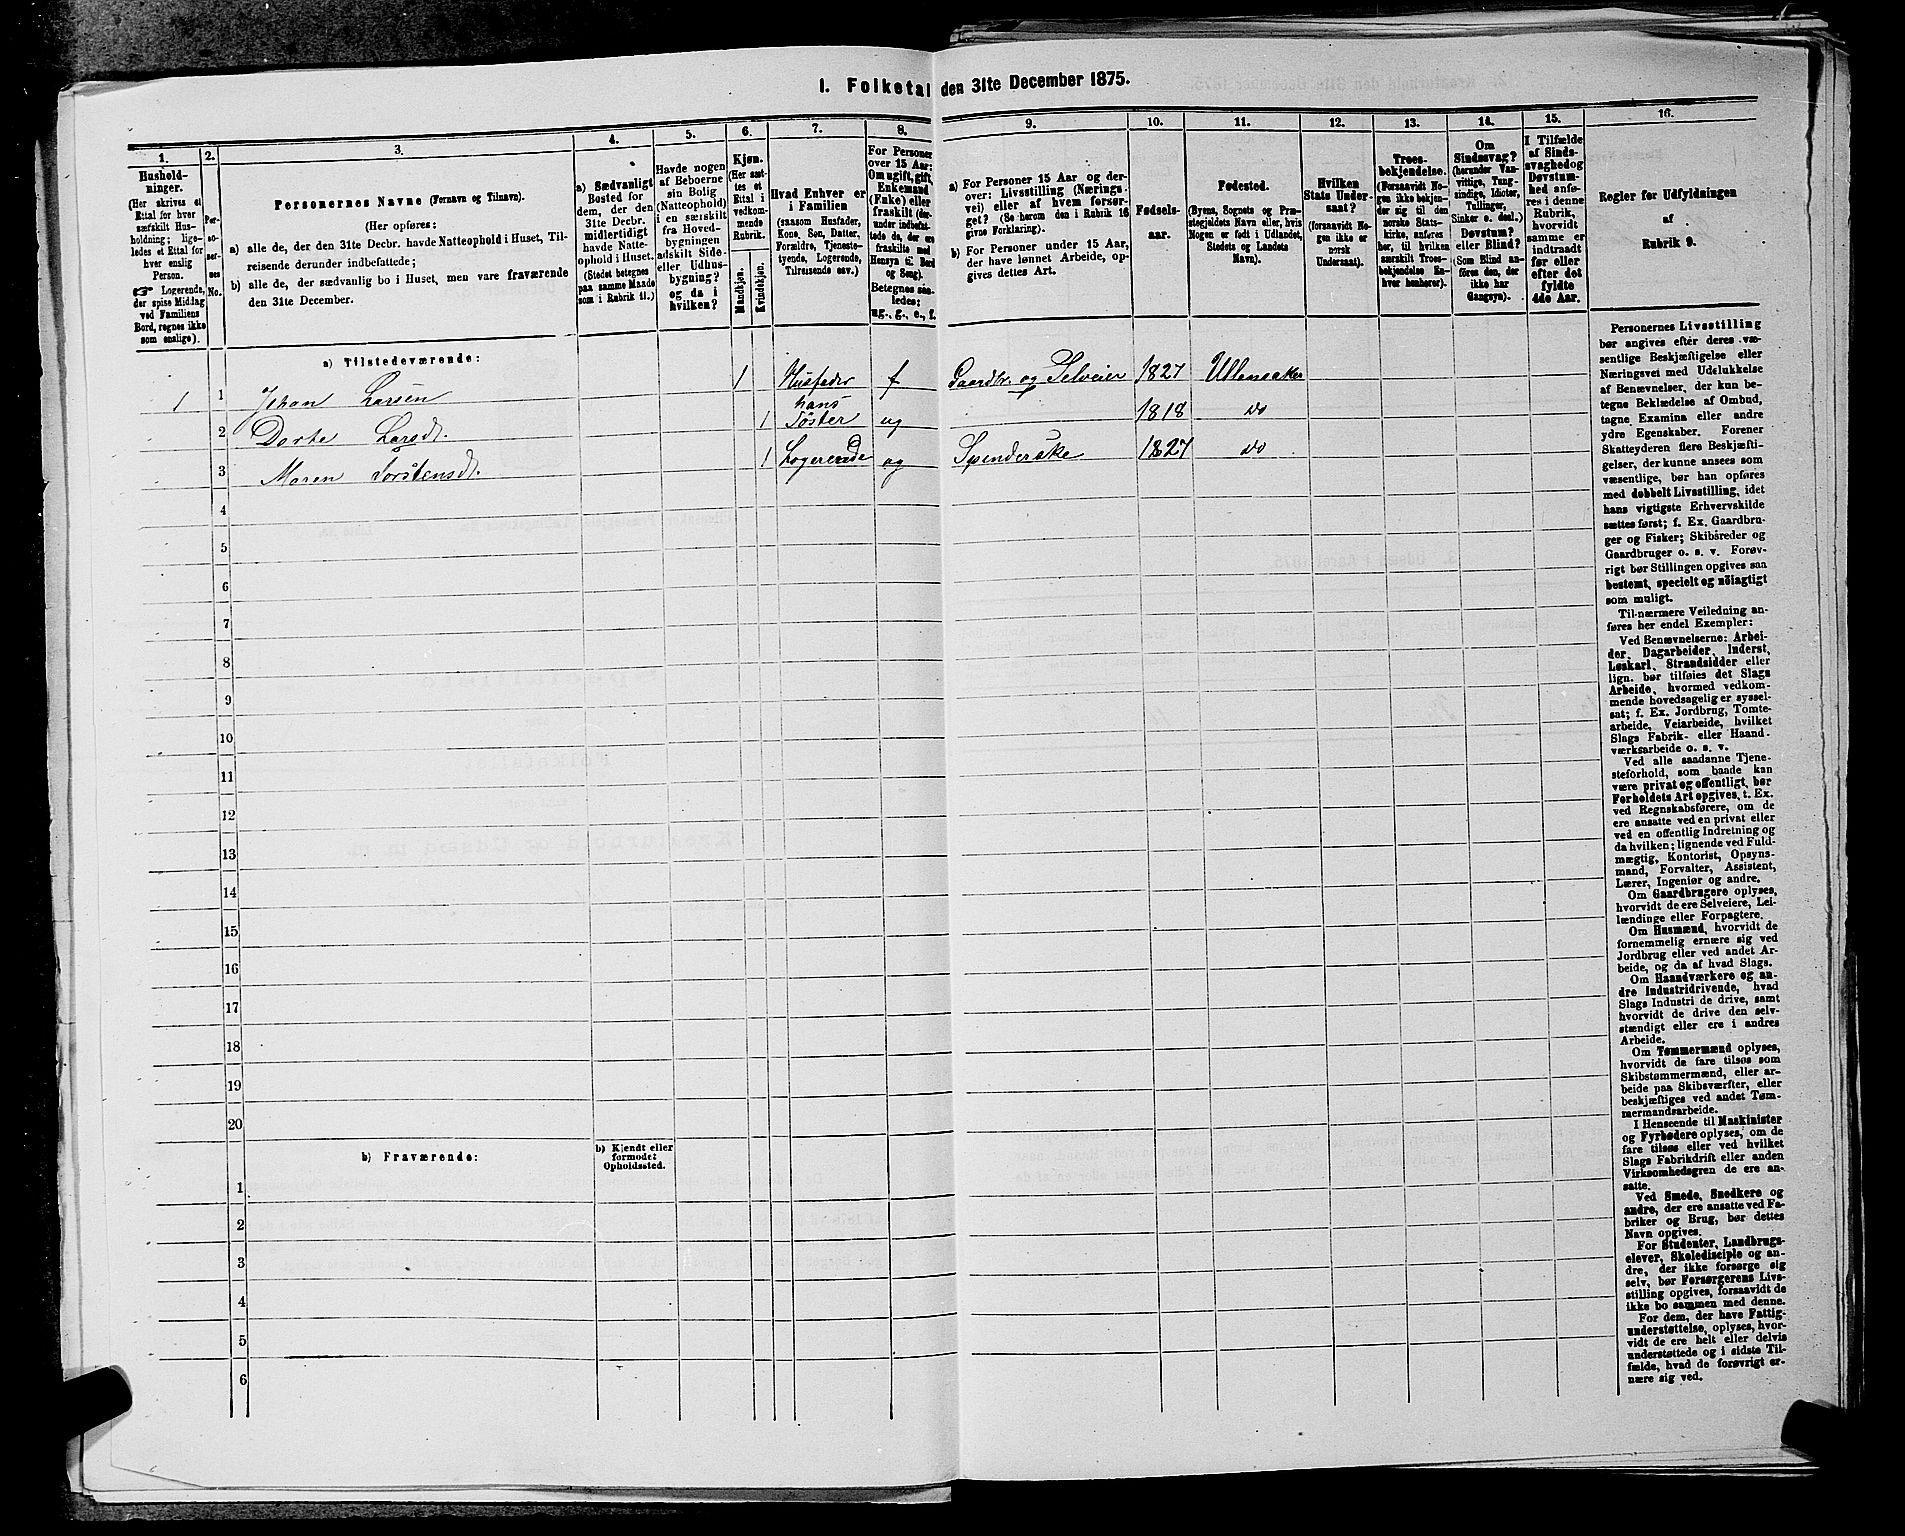 I. Folketal den 31te December 1875.
1. 2. 3. 4. 5. 6. 7. 8. 9. 10. 11. 12. 13. 14. 15. 16.
Husholdninger.
(Her skrives et
Ettal for hver
særskilt Hus-
holdning; lige-
ledes et Ettal for
hver enslig
Person.
☞ Logerende,
der spise Middag
ved Familiens
Bord, regnes ikke
som enslige).
Per-
so-
ner-
nes
No.
Personernes Navne (Fornavn og Tilnavn).
(Her opføres:
a) alle de, der den 31te Decbr. havde Natteophold i Huset, Til-
reisende derunder indbefattede;
b) alle de, der sædvanlig bo i Huset, men vare fraværende
den 31te December.
a) Sædvanligt
Bosted for
dem, der den
31te Decbr.
midlertidigt
havde Natte-
ophold i Huset.
(Stedet betegnes
paa samme Maade
som i Rubrik 11.)
Havde nogen
af Beboerne
sin Bolig
(Natteophold)
i en særskilt
fra Hoved-
bygningen
adskilt Side-
eller Udhus-
bygning?
og da i
hvilken?
Kjøn.
(Her sæt-
tes et
Ettal i
vedkom-
mende
Rubrik.
Mandkjøn.
Kvindekjøn.
Hvad Enhver er
i Familien
(saasom Husfader,
Kone, Søn, Datter,
Forældre, Tjeneste-
tyende, Logerende,
Tilreisende osv.)
For Personer
over 15 Aar:
Om ugift, gift,
Enkemand
(Enke) eller
fraskilt (der-
under indbefat-
tede de, der ere
fraskilte med
Hensyn til Bord
og Seng).
Betegnes saa-
ledes:
ug., g., e., f.
a) For Personer 15 Aar og der-
over: Livsstilling (Nærings-
vei) eller af hvem forsør-
get? (Se herom den i Rubrik 16
givne Forklaring).
b) For Personer under 15 Aar,
der have lønnet Arbeide, op-
gives dettes Art.
Fødsels-
aar.
Fødested.
(Byens, Sognets og Præ-
stegjeldets Navn eller, hvis
Nogen er født i Udlandet,
Stedets og Landets
Navn).
Hvilken
Stats Under-
saat?
(forsaavidt No-
gen ikke er
norsk
Undersaat).
Troes-
bekjendelse.
(Forsaavidt No-
gen ikke bekjen-
der sig til den
norske Stats-
kirke, anføres
her, til hvilken
særskilt Troes-
bekjendelse En-
hver henhører).
Om
Sindssvag?
(herunder Van-
vittige, Tung-
sindige, Idioter,
Tullinger,
Sinker o. desl.)
Døvstum?
eller Blind?
(Som Blind an-
føres den, der
ikke har
Gangsyn).
I Tilfælde
af Sinds-
svaghed og
Døvstum-
hed anfø-
res i denne
Rubrik,
hvorvidt
samme er
indtraadt
før eller
efter det
fyldte
4de Aar.
Regler for Udfyldningen
af
Rubrik 9.
a) Tilstedeværende:
1 1 Johan Larsen 1 Husfader f Gaardbr. og Selveier 1827 Ullensaker
2 Dorte Larsdt. 1 hans Söster ug 1818 do
3 Maren Torstensdt. 1 Logerende ug Spinderske 1827 do
4
5
6
7
8
9
10
11
12
13
14
15
16
17
18
19
20
b) Fraværende:
b) Kjendt eller
formodet
Opholdssted.
1
2
3
4
5
6
Personernes Livsstilling
bør angives efter deres væ-
sentlige Beskjæftigelse eller
Næringsvei med Udelukkelse
af Benævnelser, der kun be-
tegne Beklædelse af Ombud,
tagne Examina eller andre
ydre Egenskaber. Forener
Skatteyderen flere Beskjæfti-
gelser, der kunne ansees som
væsentlige, bør han opføres
med dobbelt Livsstilling, idet
hans vigtigste Erhvervskilde
sættes først; f. Ex. Gaardbru-
ger og Fisker; Skibsreder og
Gaardbruger o. s. v. Forøv-
rigt bør Stillingen opgives saa
bestemt, specielt og nöiagtigt
som muligt.
Til nærmere Veiledning an-
føres her endel Exempler:
Ved Benævnelserne: Arbei-
der, Dagarbeider, Inderst,
Løskarl, Strandsidder eller
lign. bør tilføies det Slags
Arbeide, hvormed vedkom-
mende hovedsagelig er syssel-
sat; f. Ex. Jordbrug, Tomte-
arbeide, Veiarbeide, hvilket
Slags Fabrik- eller Haand-
værksarbeide o. s. v.
Ved alle saadanne Tjene-
steforhold, som baade kan
være privat og offentligt, bør
Forholdets Art opgives, t. Ex.
ved Regnskabsførere, om de
ere ansatte ved en privat eller
ved en offentlig Indretning og
da hvilken; lignende ved Fuld-
mægtig, Kontorist, Opsyns-
mand, Forvalter, Assistent,
Lærer, Ingeniør og andre.
Om Gaardbrugere oplyses,
hvorvidt de ere Selveiere, Lei-
lændinge eller Forpagtere.
Om Husmænd, hvorvidt de
fornemmelig ernære sig ved
Jordbrug eller ved andet Ar-
beide, og da af hvad Slags.
Om Haandværkere og an-
dre Industridrivende, hvad
Slags Industri de drive, samt
hvorvidt de drive den selv-
stændigt eller ere i andres
Arbeide.
Om Tømmermænd oplyses,
hvorvidt de fare tilsøs som
Skibstømmermænd, eller ar-
beide paa Skibsværfter, eller
beskjæftiges ved andet Tøm-
mermandsarbeide.
I Henseende til Maskinister
og Fyrbødere oplyses, om de
fare tilsøs eller ved hvilket
Slags Fabrikdrift eller anden
Virksomhedsgren de ere an-
satte.
Ved Smede, Snedkere og
andre, der ere ansatte ved Fa-
briker og Brug, bør dettes
Navn opgives.
For Studenter, Landbrugs-
elever, Skoledisciple og an-
dre, der ikke forsørge sig
selv, bør Forsørgerens Livs-
stilling opgives, forsaavidt de
ikke bo sammen med denne.
For dem, der have Fattig-
understøttelse, oplyses, hvor-
vidt de ere helt eller delvis
understøttede og i sidste Til-
fælde, hvad de forøvrigt er-
nære sig ved.